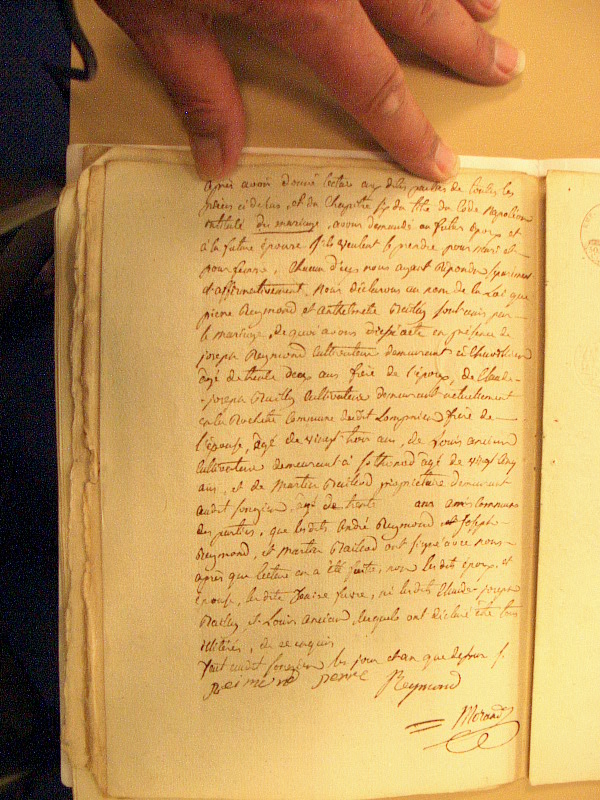 après avoir donné lecture aux dites parties de toutes les
pièces ci dessus, et du Chapitre six du titre du Code Napoléon
intitulé du mariage, avons demandé au futur époux et
à la future épouse s'ils veulent se prendre pour mari et
pour femme, chacun d'eux nous ayant répondu séparément
et affirmativement. Nous déclarons au nom de la Loi que
pierre Reymond et anthelmette Bailly sont unis par
le mariage, de quoi avons dressé acte en présence de
joseph Reymond Cultivateur demeurant
âgé de trente deux ans frère de l'époux, de Claude-
-joseph Bailly Cultivateur demeurant actuellement
en la Rochette Commune dudit Lompnieu frère de
l'épouse, âgé de vingt trois ans, de Louis ancian
Cultivateur demeurant à sothonod âgé de vingt cinq
ans, et de Martin Baillod propriétaire demeurant
audit songieu, âgé de trente ans amis communs
des parties, que lesdits André Reymond, et Joseph
Reymond, et martin Baillod ont signé avec nous
après que lecture en a été faite, non lesdits époux et
épouse, ladite favre, ni lesdits Claude-joseph
Bailly et Louis ancian, lesquels ont déclaré être tous
illitérés, de ce enquis
fait audit songieu les jour et an que dessus
Reimond Reymond
Morand